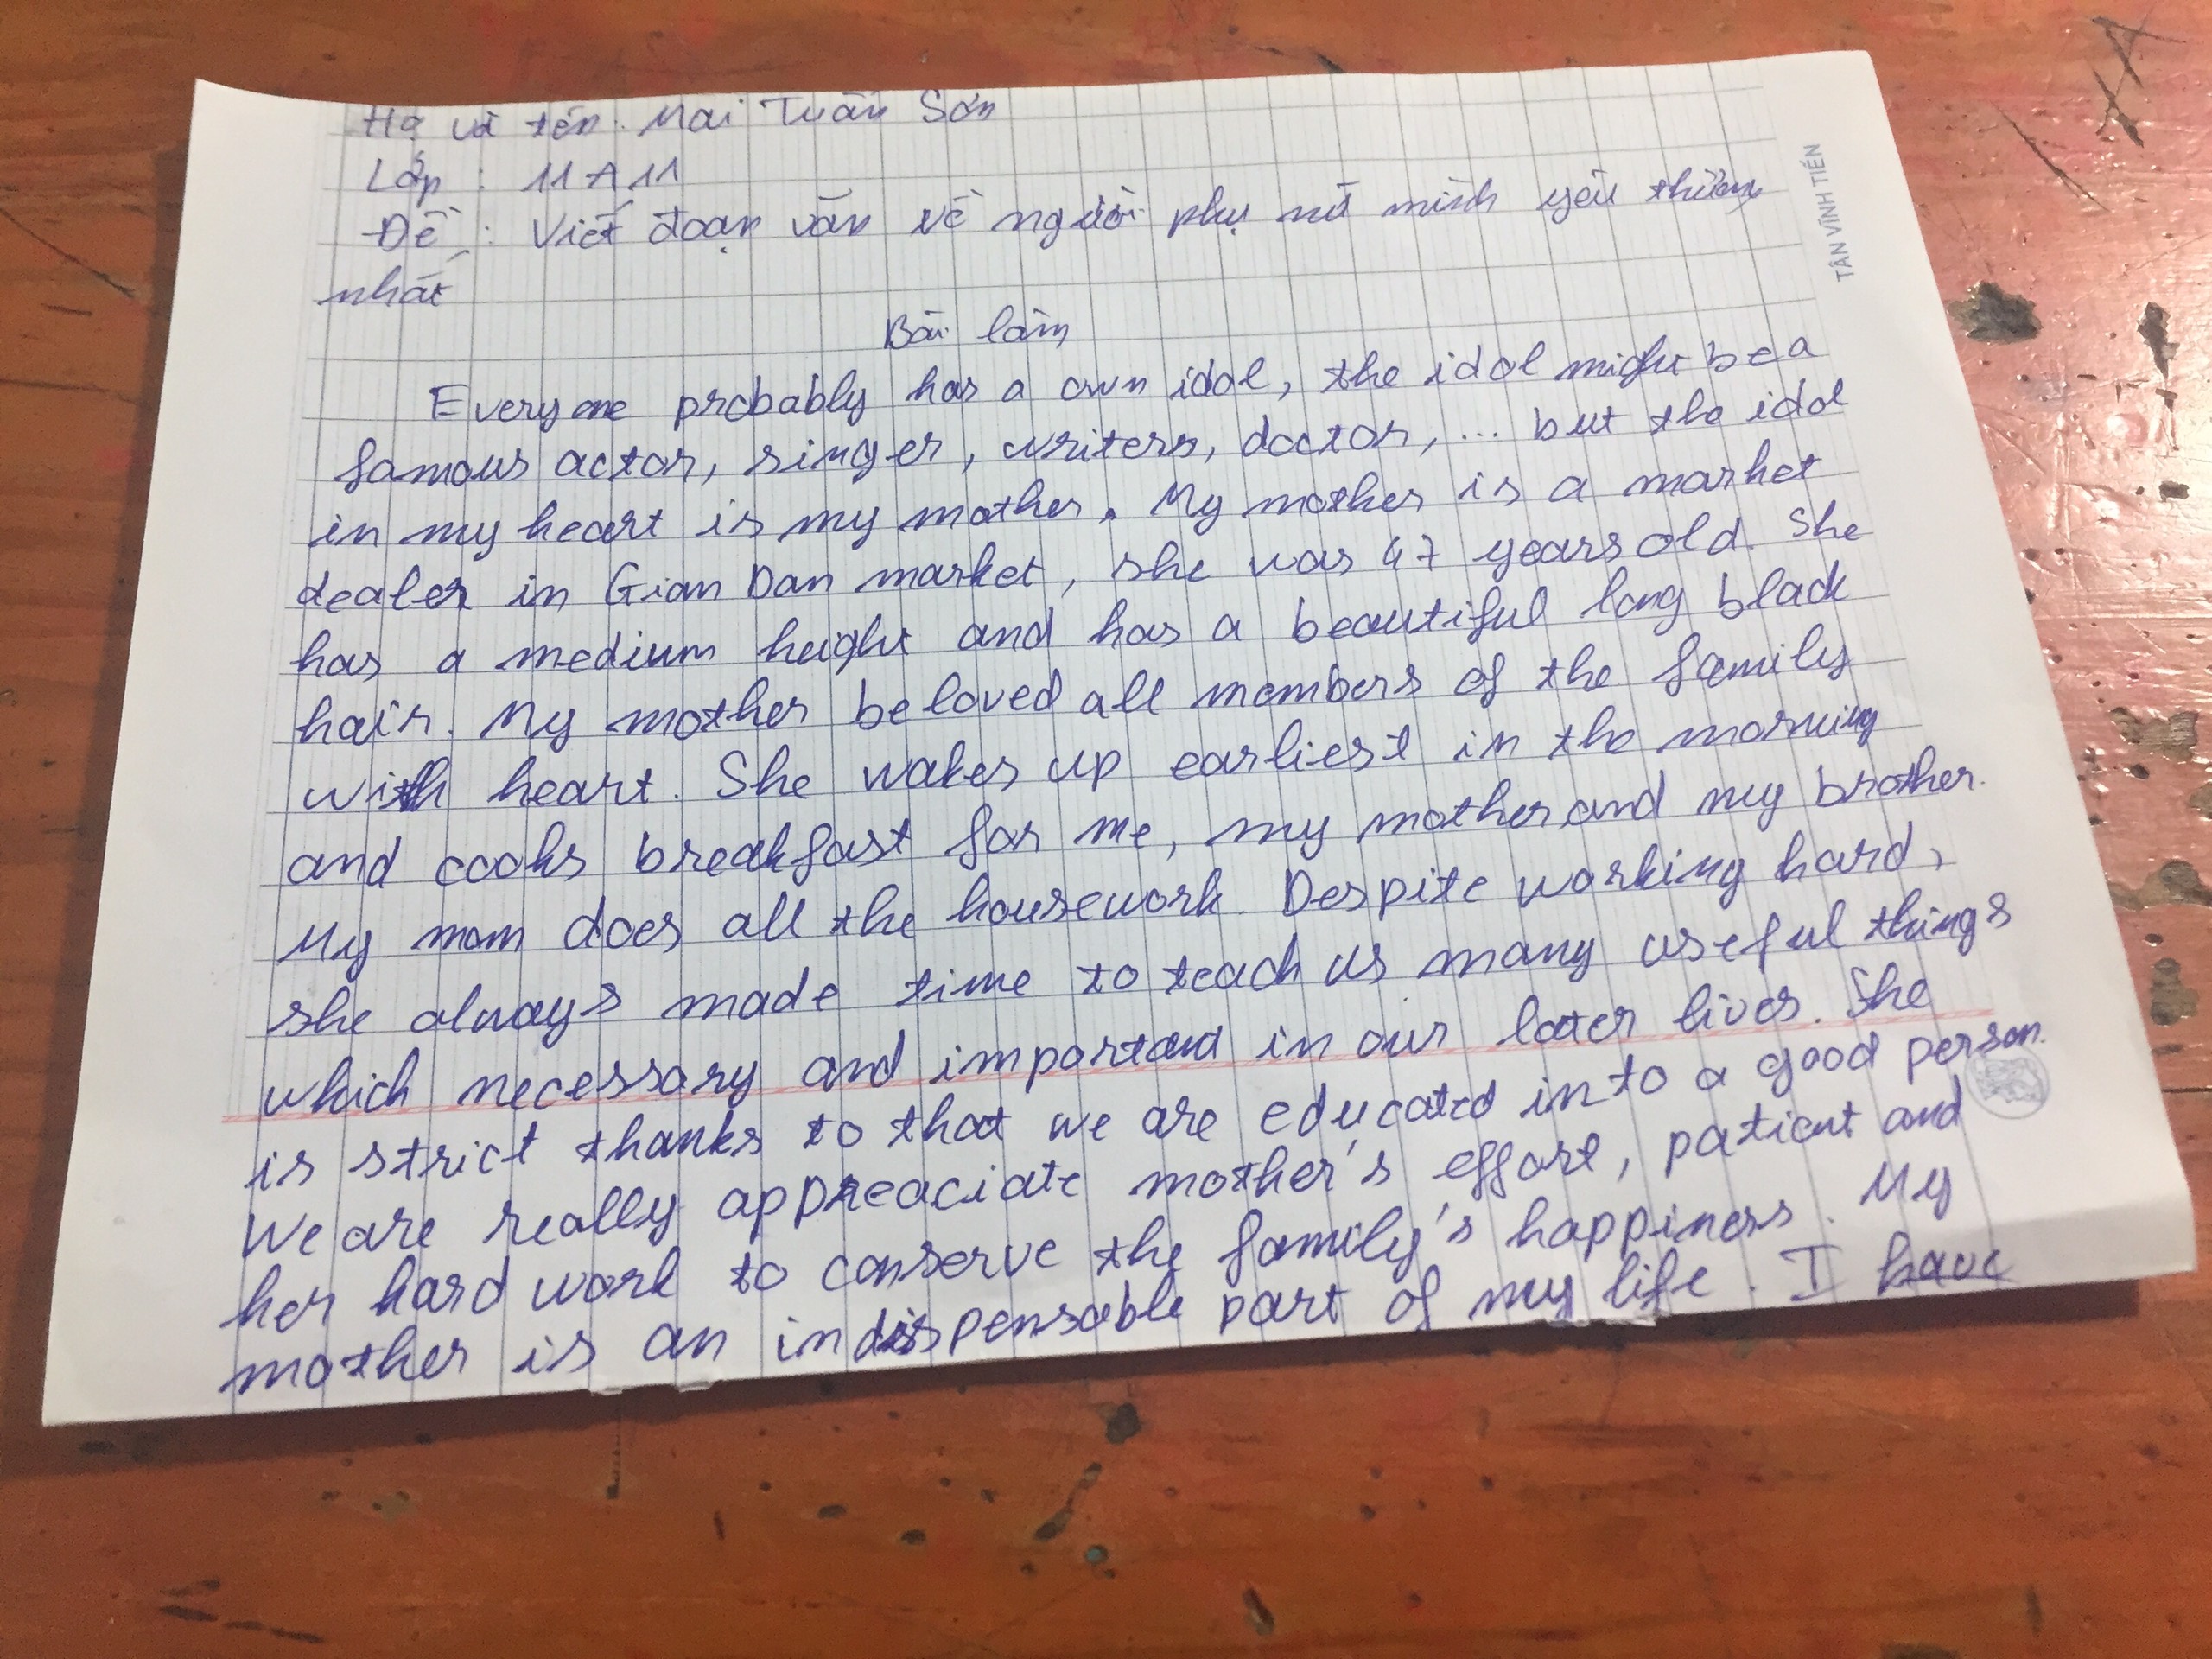 Họ và tên: Mai Tuấn Sơn
Lớp : 11A11
Đề : Viết đoạn văn về người phụ nữ mình yêu thương
nhất
Bài làm
Everyone probably has a own idol, the idol might be a
famous actor, singer, writers, doctor, ... but the idol
in my heart is my mother. My mother is a market
dealer in Gian Dan market, she was 47 years old. She
has a medium height and has a beautiful long black
hair. My mother beloved all members of the family
with heart. She wakes up earliest in the morning
and cooks breakfast for me, my mother and my brother.
My mom does all the housework. Despite working hard,
she always made time to teach us many useful things
which necessary and important in our later lives. She
is strict thanks to that we are educated into a good person.
We are really appreaciate mother's effort, patient and
her hard work to conserve the family's happiness. My
mother is an indispensable part of my life. I have
TÂN VĨNH TIẾN